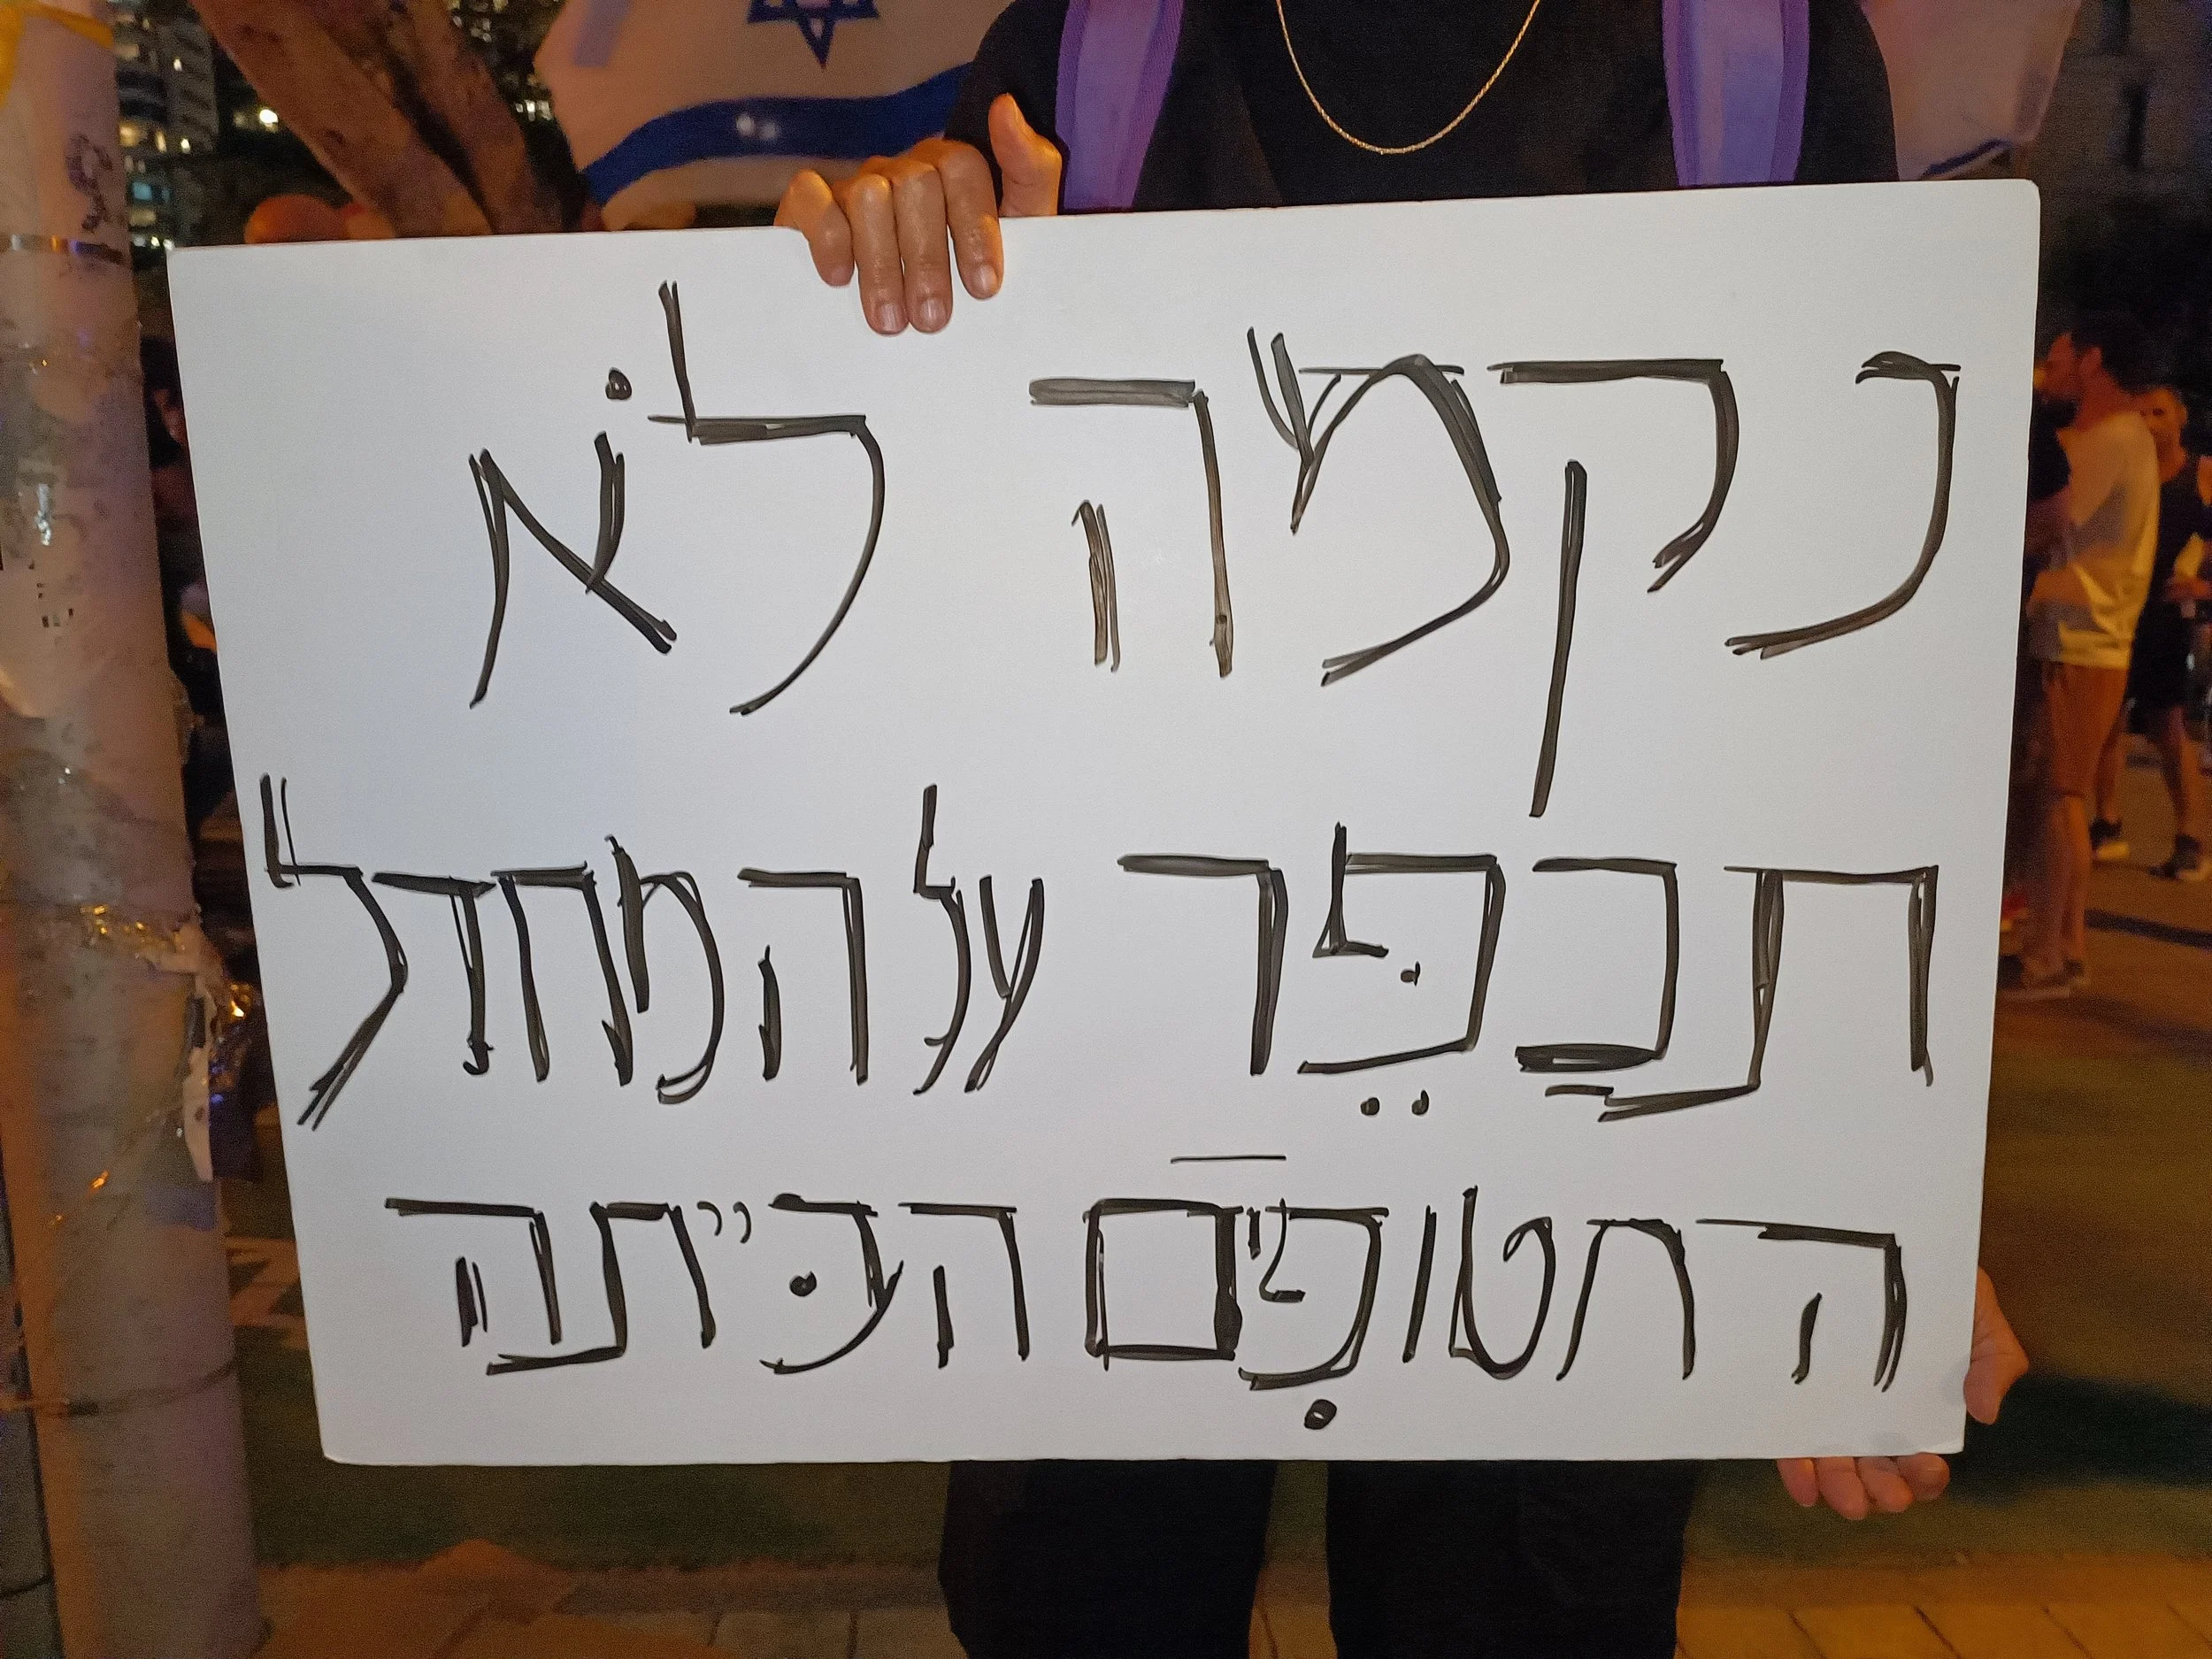 נקמה לֹא
תכפֵּר על המחדל
החטופִים הבּייתה